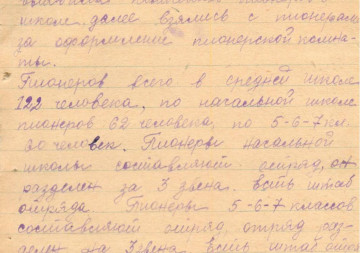 школе далее взялись с пионерами
за оформление пионерской комна-
ты.
Пионеров всего в средней школе
122 человека, по начальной школе
пионеров 62 человека, по 5-6-7 кл.
человек. Пионеры начальной
школы составляют отряд, от
разделен за 3 звена. Есть штаб
отряда Пионеры 5-6-7 классов
составляют отряд, отряд раз-
делен на 3 звена. Есть штаб отря